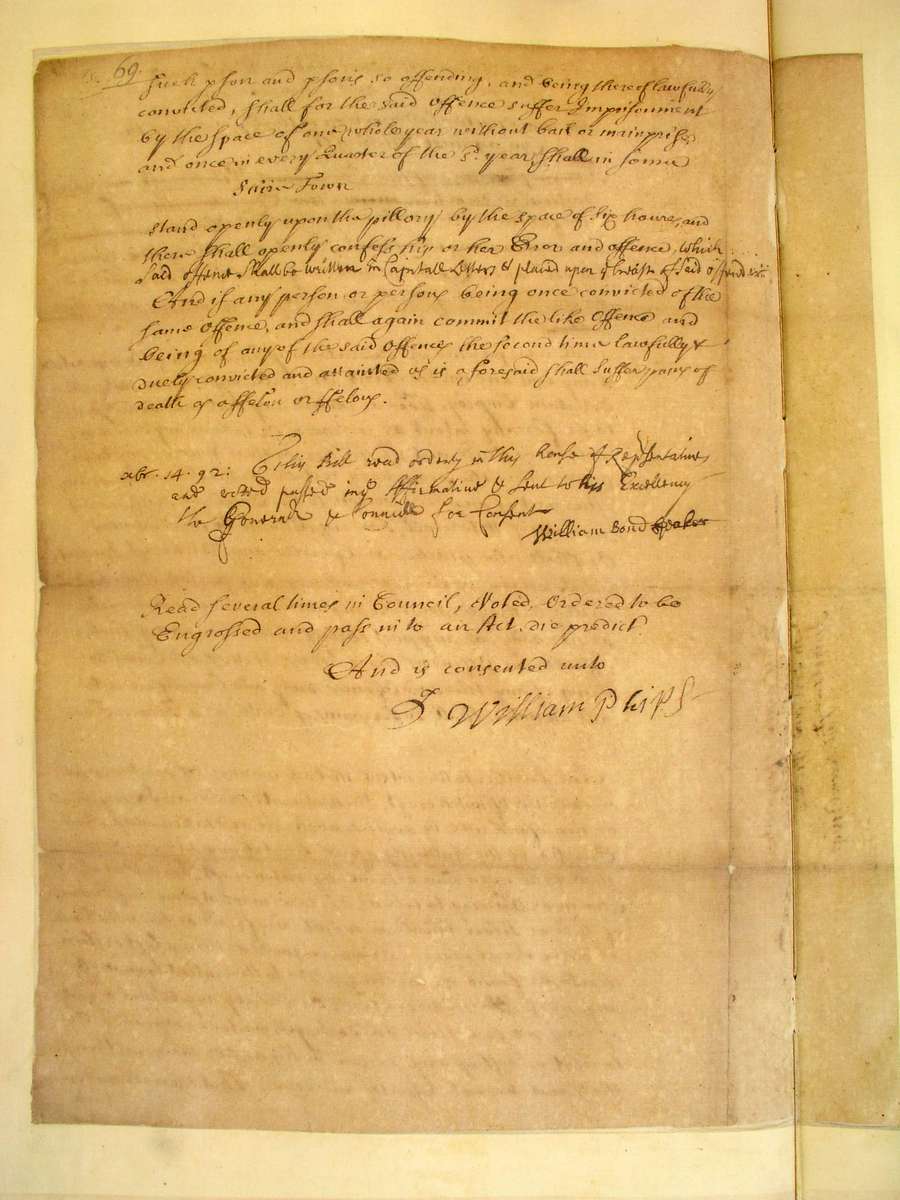 69.
Such pson and psons so offending, and being thereof lawfully
convicted, shall for the said Offence suffer Imprisonment
by the space of one whole year without baile or mainprise
and once in every Quarter of the sd. year, shall in some
Shire Town
stand openly upon the pillory by the space of Six houres, and
there shall openly confess his or her Error and offence, which
said offence shall be written in Capitall Letters & placed upon ye breast of said offender
And if any person or persons being once convicted of the
same Offence, and shall again commit the like Offence and
being of any of the said Offences the second time lawfully &
duely convicted and attainted as is aforesaid shall suffer pains of
death as a ffelon or ffelons.
14. 92: This Bill read orderly in this House of Representatives
and voted passed in ye Affirmative & Sent to his Excellency
the Govenr & Councill for Consent
William Bond Speaker
Read several times in Council, Voted, Ordered to be
Engrossed and pass into an Act, die predict.
And is consented unto
William Phips